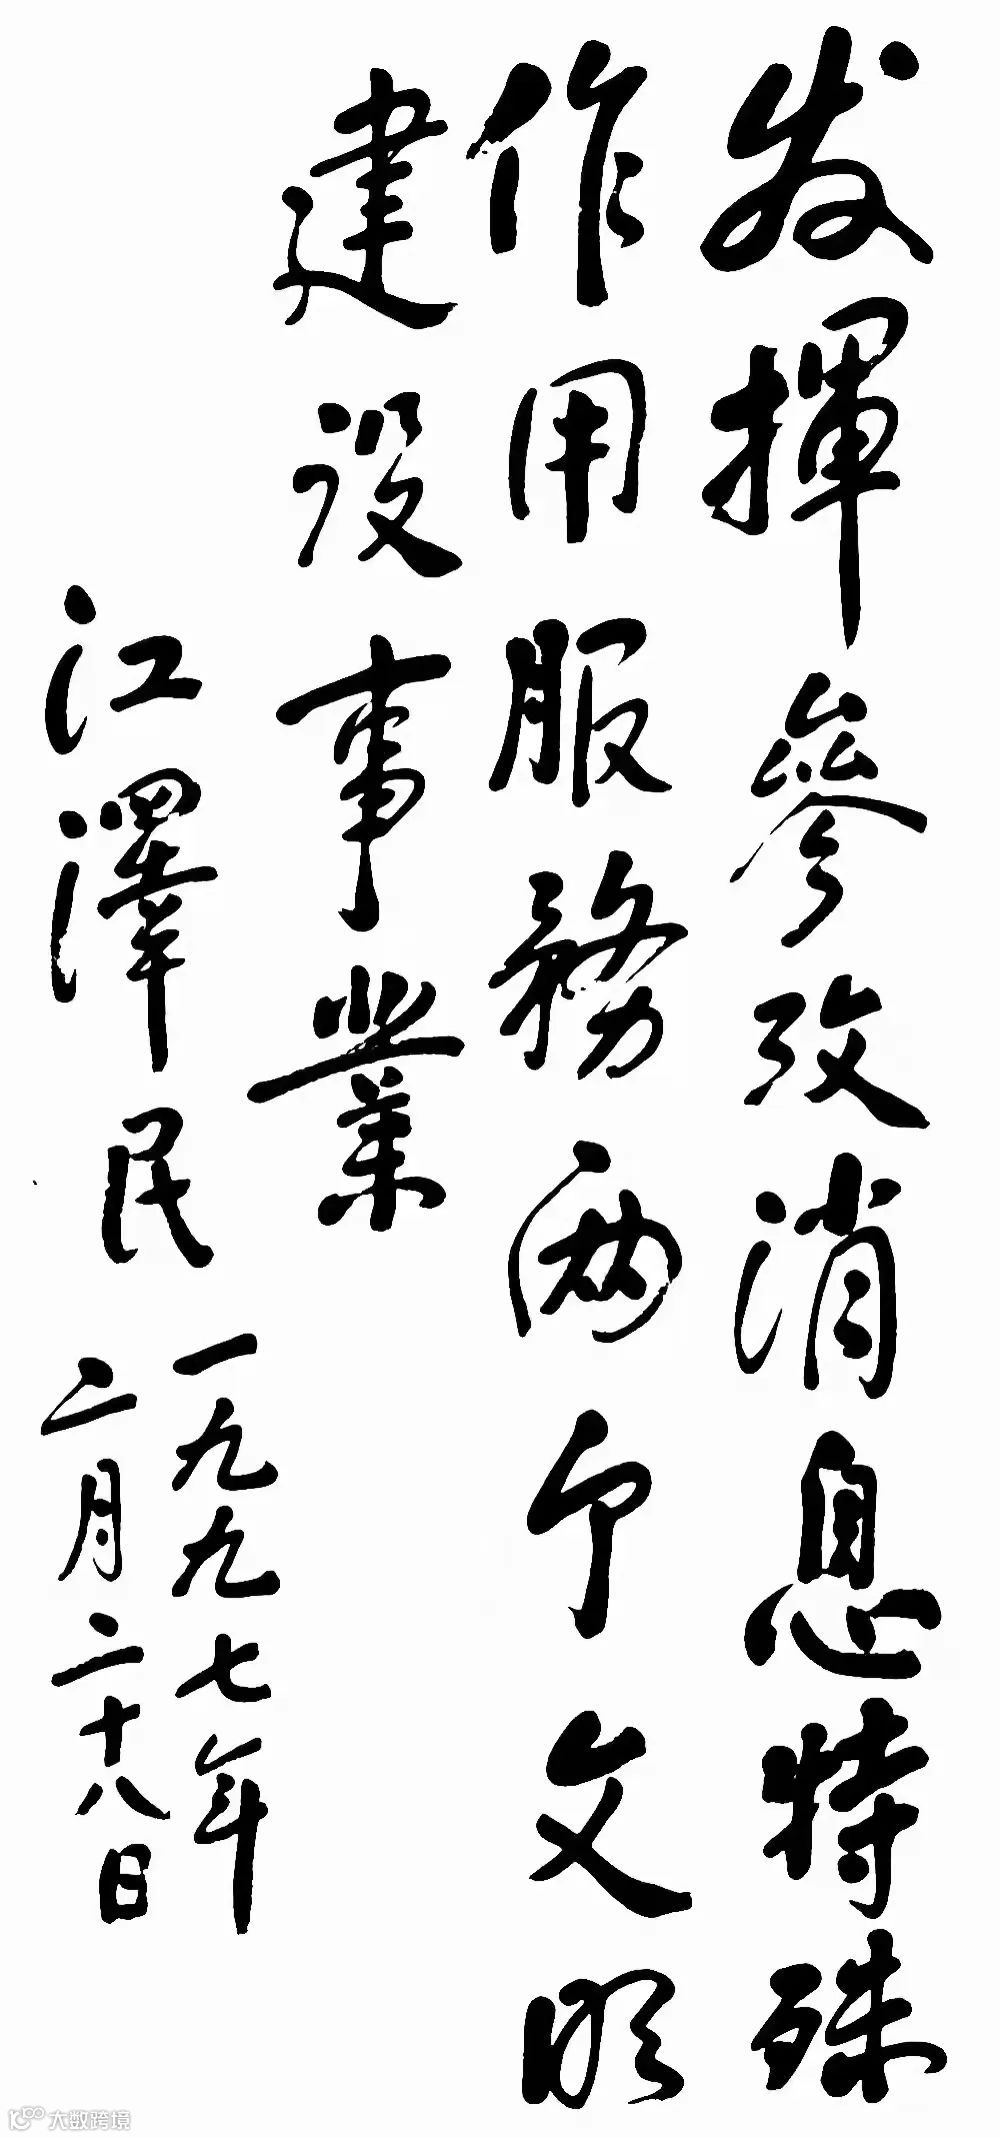 发揮參攷消息特殊
作用服務两个文明
建设事業
江澤民
一九九七年
二月二十八日
10100 大数跨境